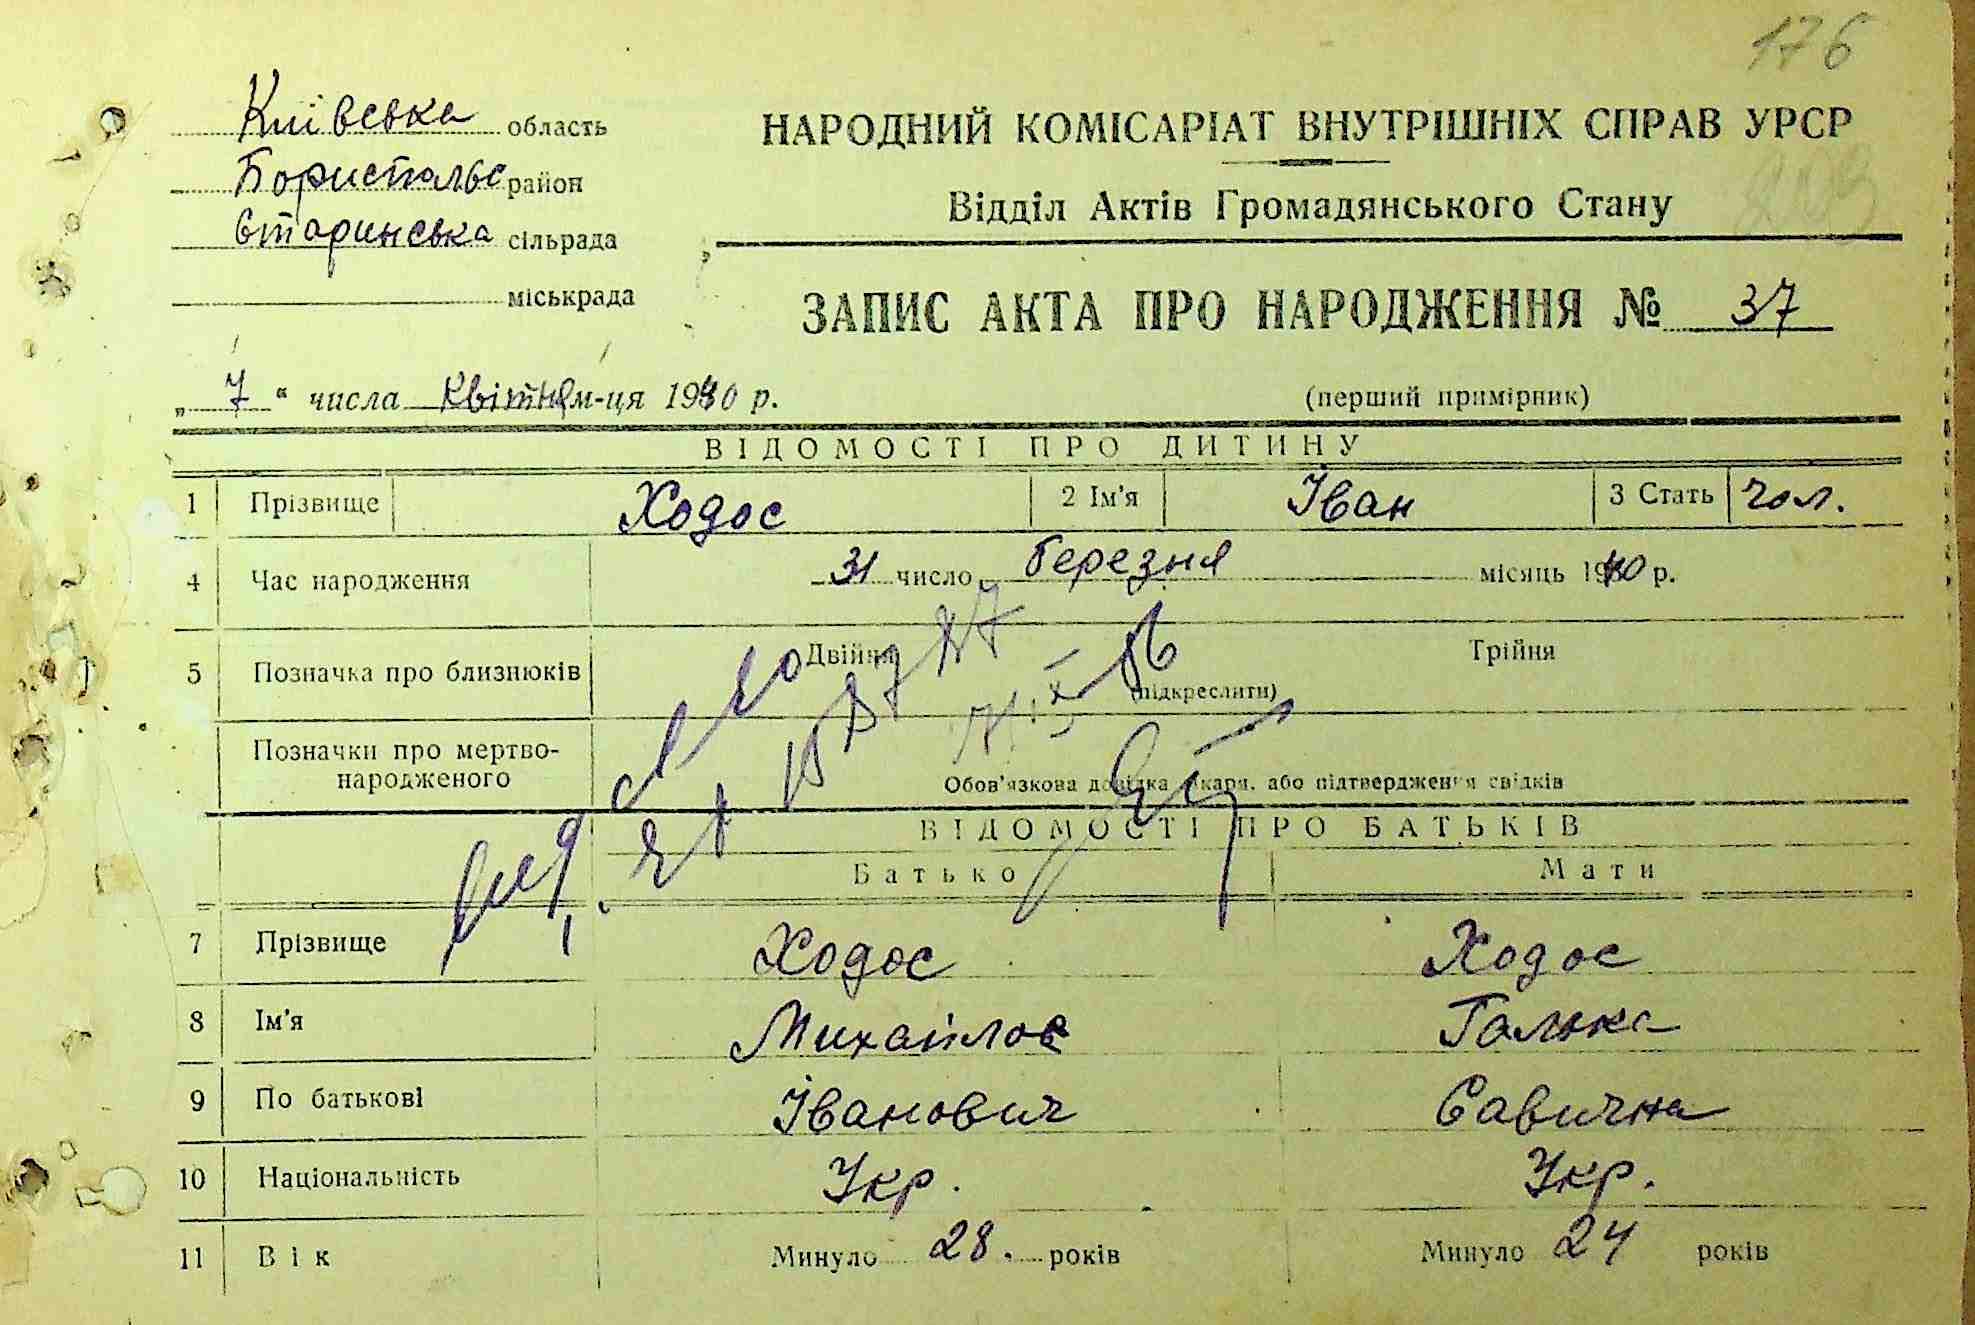 176
Київська область
НАРОДНИЙ КОМІСАРІАТ ВНУТРІШНІХ СПРАВ УРСР
Бориспольс район
Відділ Актів Громадянського Стану
Старинська сільрада
міськрада
ЗАПИС АКТА ПРО НАРОДЖЕННЯ № 37
„ 7 “ числа Квітня м-ця 1940 р.
(перший примірник)
ВІДОМОСТІ ПРО ДИТИНУ
1 Прізвище Ходос 2 Ім'я Іван 3 Стать чол.
4 Час народження 31 число березня місяць 1940 р.
5 Позначка про близнюків Двійня Трійня
(підкреслити)
Позначки про мертво-
народженого
Обов'язкова довідка лікаря, або підтвердження свідків
ВІДОМОСТІ ПРО БАТЬКІВ
Батько Мати
7 Прізвище Ходос Ходос
8 Ім'я Михайлов Галька
9 По батькові Іванович Савична
10 Національність Укр. Укр.
11 Вік Минуло 28. років Минуло 24 років